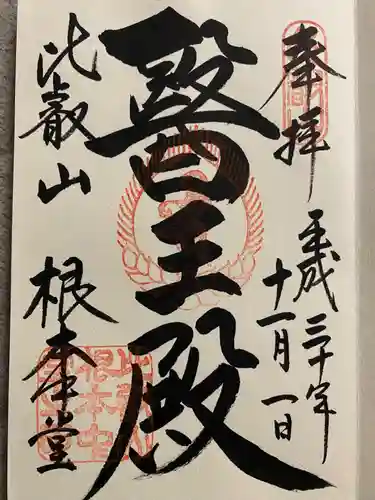 奉拝
平成三十年
十一月一日
醫王殿
比叡山
根本堂